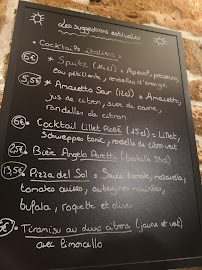 Les suggestions estivales
• Cocktails italiens :
6€ * Spritz (15cl) = Aperol, prosecco,
eau pétillante, rondelles d'orange
5,5€ * Amaretto Sour (12cl) = Amaretto,
jus de citron, sucre de canne,
rondelles de citron
6€ • Cocktail Lillet Rosé (15cl) = Lillet,
Schweppes tonic, rondelle de citron vert
2,5€ • Bière Angelo Poretti (bouteille 33cl)
13,5€ • Pizza del Sol = Sauce tomate, mozzarella,
tomates cerises, aubergines marinées,
bufala, roquette et olive
€ • Tiramisu au deux citrons (jaune et vert)
avec limoncello